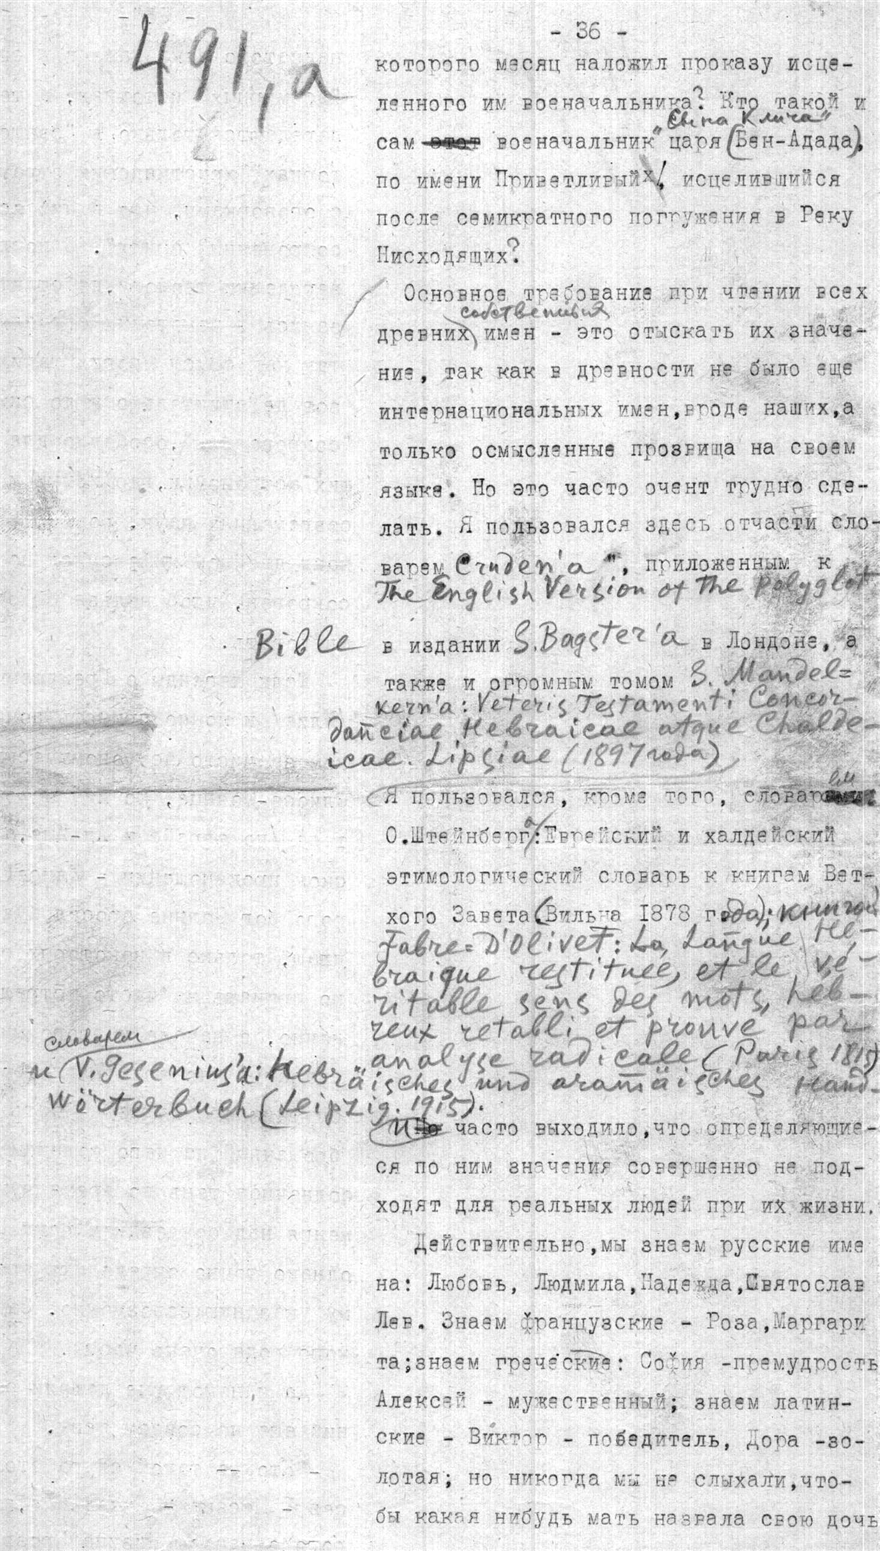 491,а
- 36 -
которого месяц наложил проказу исце-
ленного им военачальника? Кто такой и
"Сына Клича"
сам этот военачальник царя (Бен-Адада),
по имени Приветливый, исцелившийся
после семикратного погружения в Реку
Нисходящих?
Основное требование при чтении всех
собственных
древних имен - это отыскать их значе-
ние, так как в древности не было еще
интернациональных имен,вроде наших,а
только осмысленные прозвища на своем
языке. Но это часто очент трудно сде-
лать. Я пользовался здесь отчасти сло-
варем "Cruden'a", приложенным к
The English Version of the Polyglot
Bible в издании S.Bagster'a в Лондоне, а
также и огромным томом S. Mandel=
kern'a: Veteris Testamenti Concor-
danciae Hebraicae atque Chalde-
icae. Lipsiae (1897 года)
Я пользовался, кроме того, словарем
О.Штейнберга: Еврейский и халдейский
этимологический словарь к книгам Вет-
хого Завета (Вильна 1878 года); книгой
Fabre=D'Olivet: La Langue He-
braique restituée, et le ve-
ritable sens des mots, heb-
reux retabli et prouvé par
analyse radicale (Paris 1815)
словарем
и V.Gesenius'a: Hebräisches und aramäisches Hand-
wörterbuch (Leipzig. 1915).
И часто выходило,что определяющие-
ся по ним значения совершенно не под-
ходят для реальных людей при их жизни.
Действительно,мы знаем русские име
на: Любовь, Людмила,Надежда,Святослав
Лев. Знаем французские - Роза,Маргари
та;знаем греческие: София -премудрость
Алексей - мужественный; знаем латин-
ские - Виктор - победитель, Дора -зо-
лотая; но никогда мы не слыхали,что-
бы какая нибудь мать назвала свою дочь